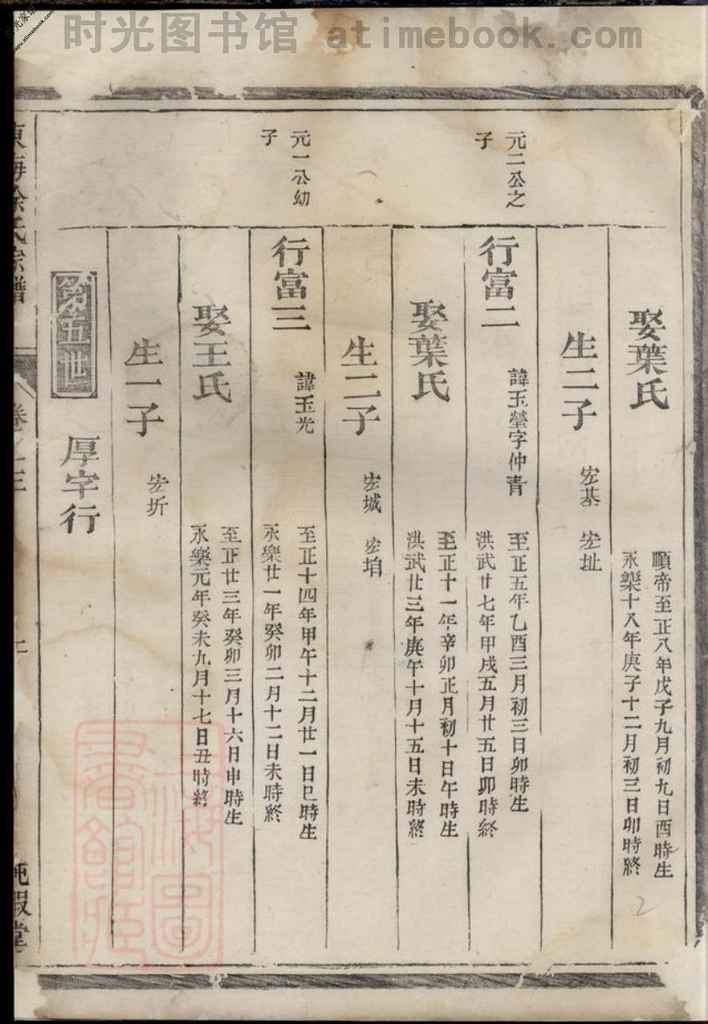 时光图书馆 atimebook.com
娶葉氏
順帝至正八年戊子九月初九日酉時生
永樂十八年庚子十二月初三日卯時終
生二子
宏基 宏址
元二公之
子
行富二
諱玉瑩字仲青
至正五年乙酉三月初三日卯時生
洪武廿七年甲戌五月廿五日卯時終
娶葉氏
至正十一年辛卯正月初十日午時生
洪武廿三年庚午十月十五日未時終
生二子
宏城 宏垍
元一公幼
子
行富三
諱玉光
至正十四年甲午十二月廿一日巳時生
永樂廿一年癸卯二月十二日未時終
娶王氏
至正廿三年癸卯三月十六日申時生
永樂元年癸未九月十七日丑時終
生一子
宏圻
第五世
厚字行
東海徐氏宗譜
卷之三
純嘏堂
2